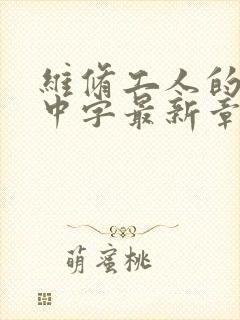 維脩工人的
中字最新章
萌蜜桃